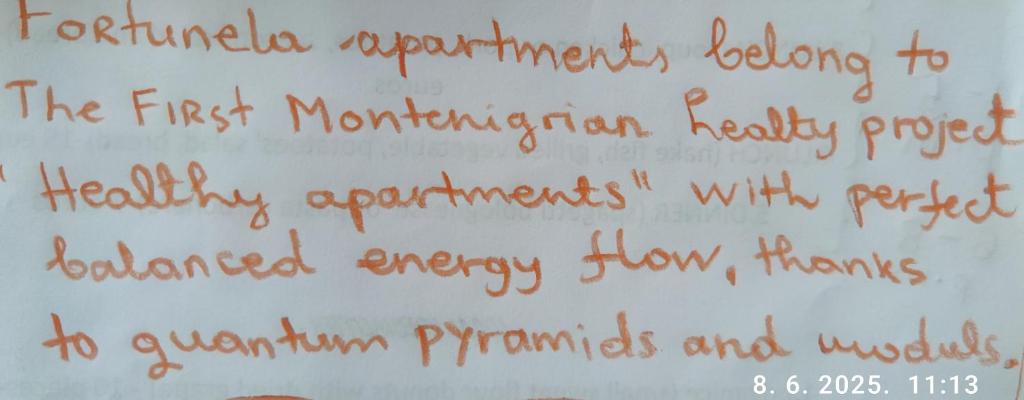 Fortunela apartments belong to
The First Montenigrian healty project
"Healthy apartments" with perfect
balanced energy flow, thanks
to quantum pyramids and moduls.
8. 6. 2025. 11:13